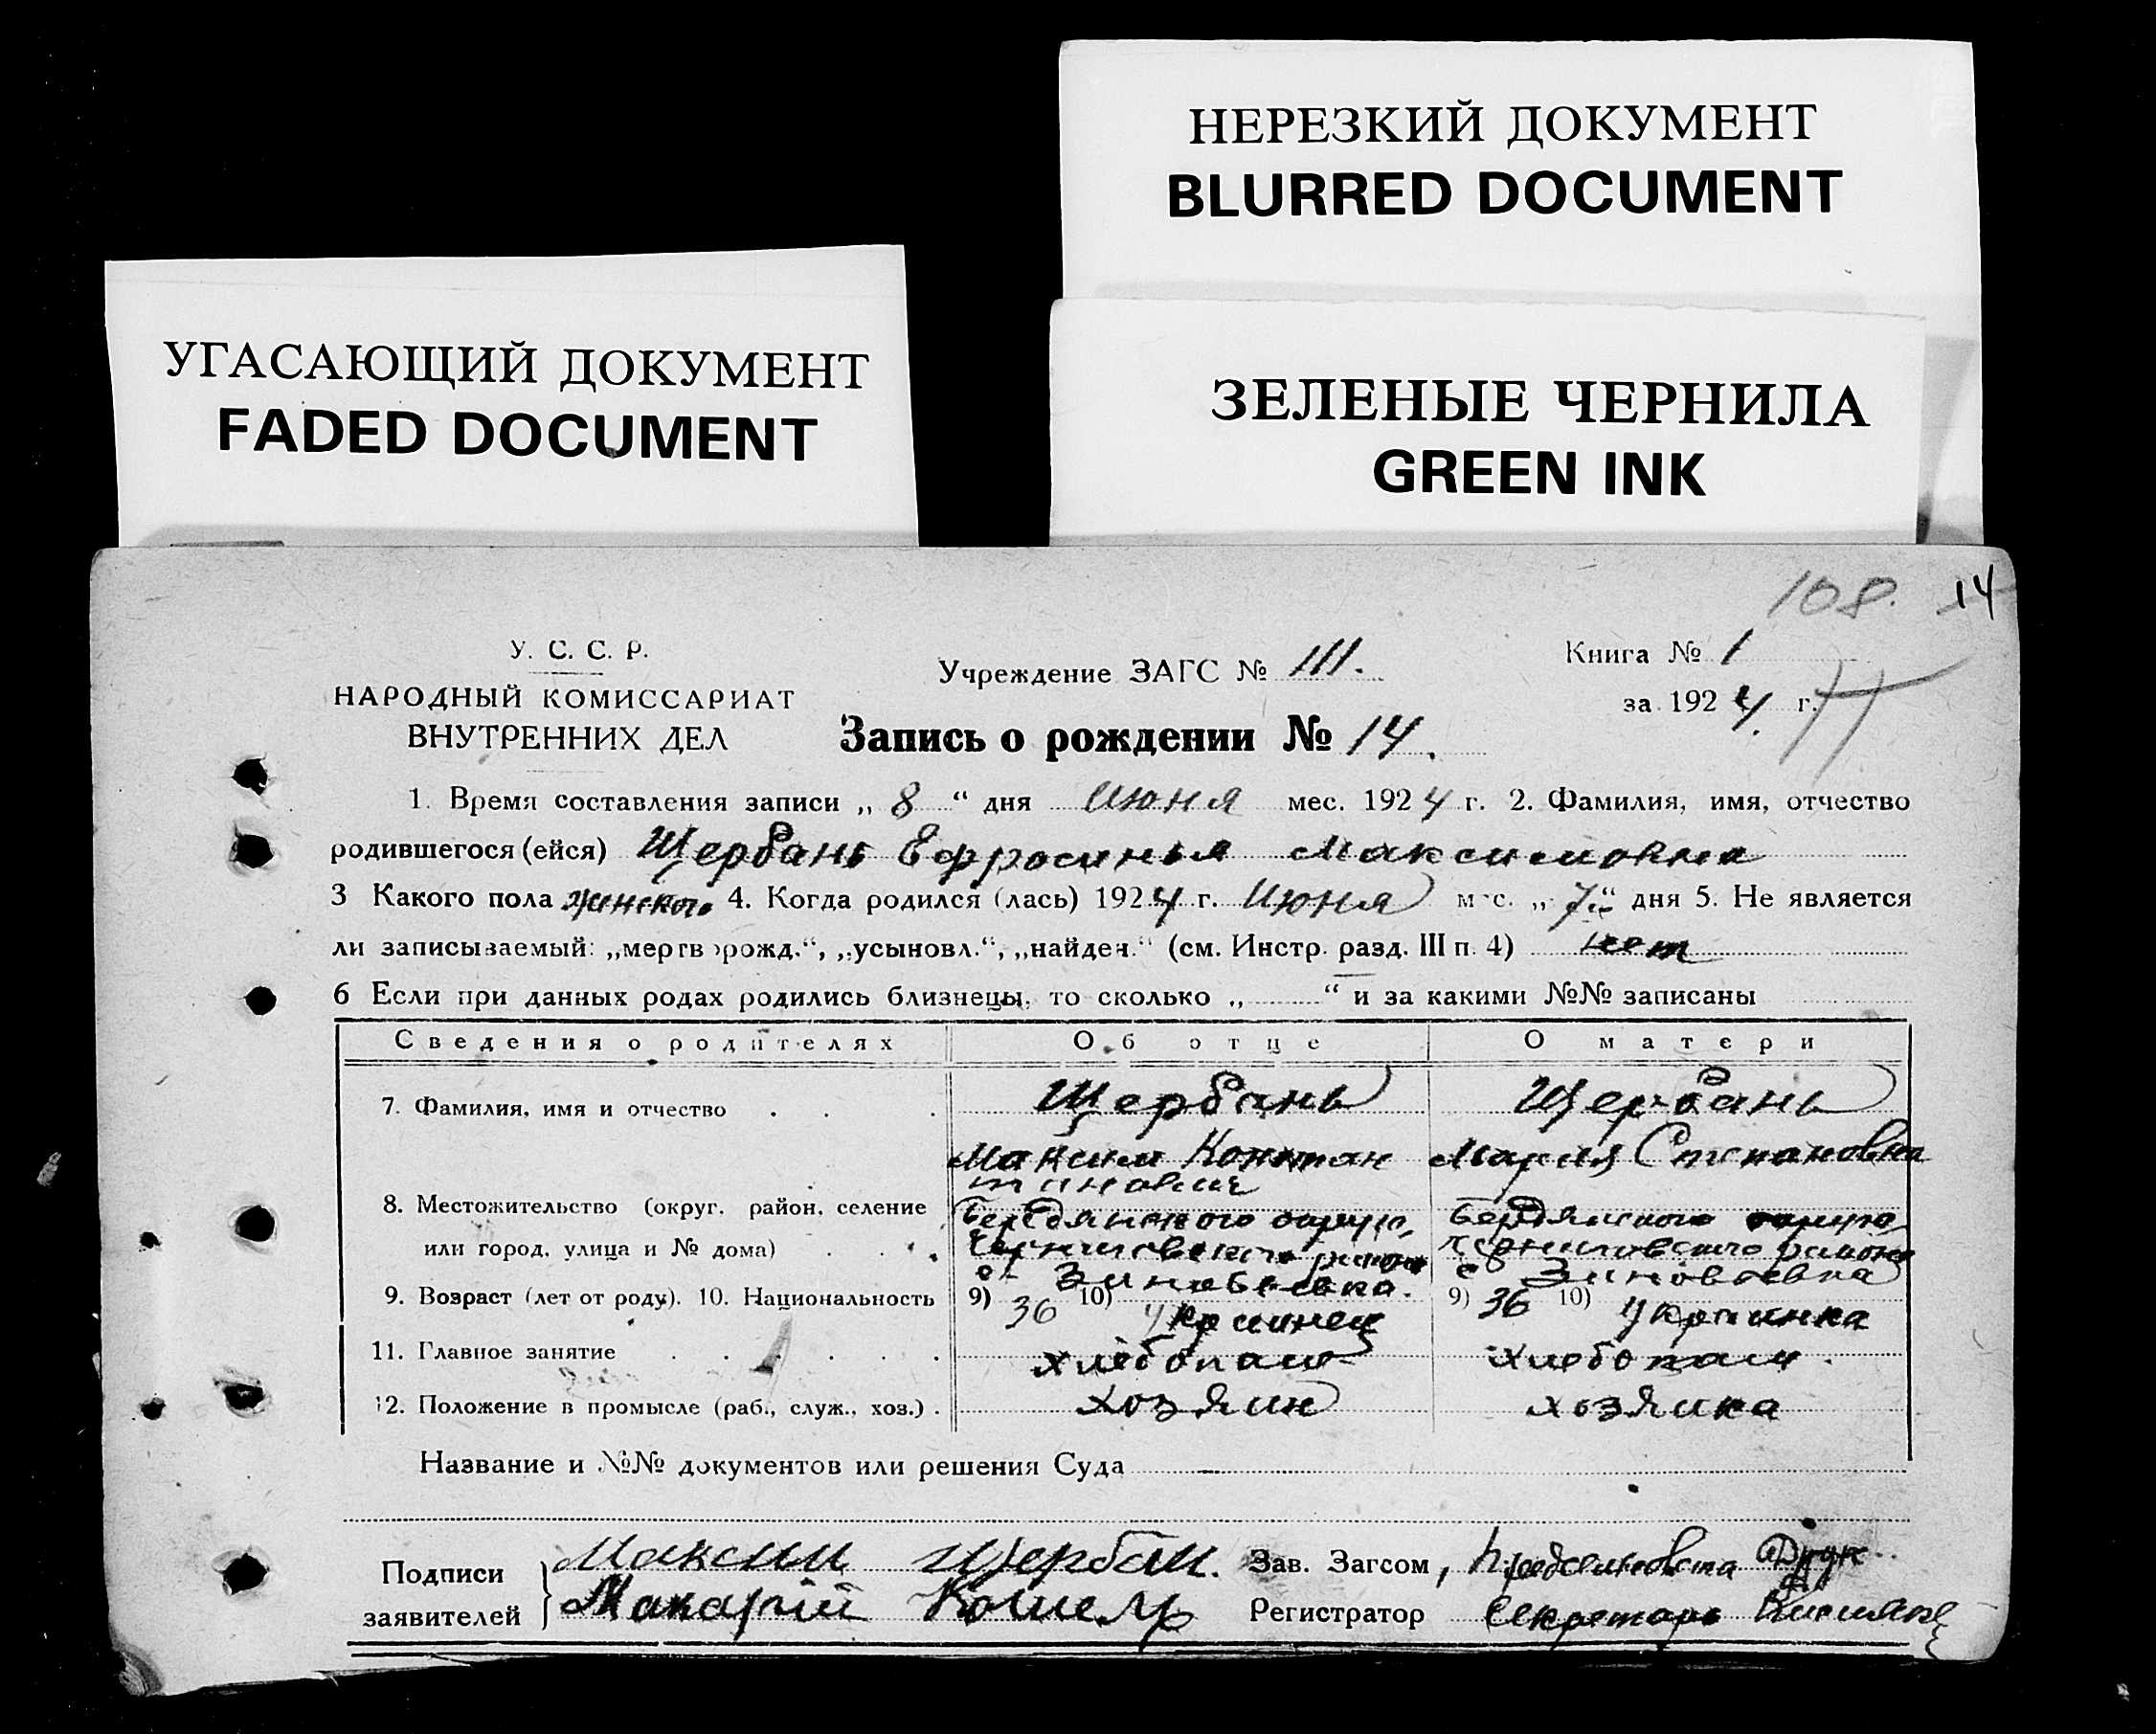 НЕРЕЗКИЙ ДОКУМЕНТ
BLURRED DOCUMENT
УГАСАЮЩИЙ ДОКУМЕНТ
FADED DOCUMENT
ЗЕЛЕНЫЕ ЧЕРНИЛА
GREEN INK
108. 14
У. С. С. Р.
НАРОДНЫЙ КОМИССАРИАТ
ВНУТРЕННИХ ДЕЛ
Учреждение ЗАГС № 111.
Книга № 1
за 1924 г.
Запись о рождении № 14.
1. Время составления записи „ 8 “ дня Июня мес. 1924 г. 2. Фамилия, имя, отчество
родившегося (ейся) Щербань Ефросинья Максимовна
3 Какого пола женского 4. Когда родился (лась) 1924 г. Июня мес. „ 7 “ дня 5. Не является
ли записываемый: „мертворожд.“, „усыновл.“, „найден.“ (см. Инстр. разд. III п. 4) нет
6 Если при данных родах родились близнецы, то сколько „ “ и за какими №№ записаны
Сведения о родителях Об отце О матери
7. Фамилия, имя и отчество Щербань Щербань
Максим Констан Мария Степановна
тинович
8. Местожительство (округ, район, селение Бердянского округа, Бердянского округа
или город, улица и № дома) Черниговского района Черниговского района
с. Зиновьевка. с Зиновьевка
9. Возраст (лет от роду). 10. Национальность 9) 36 10) украинец 9) 36 10) украинка
11. Главное занятие хлебопаш хлебопаш.
12. Положение в промысле (раб., служ., хоз.) . хозяин хозяйка
Название и №№ документов или решения Суда
Подписи Максим Щербан. Зав. Загсом, Предсельсовета
заявителей Макарій Кошель Регистратор Секретарь